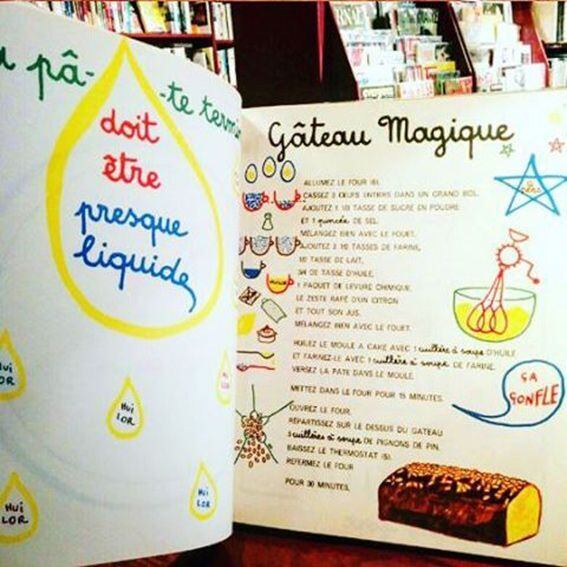 pâ-
-te termi
doit
être
presque
liquide
HUI
LOR
HUI
LOR
HUI
LOR
HUI
LOR
HUI
LOR
Gâteau Magique
ALLUMEZ LE FOUR (6).
CASSEZ 3 ŒUFS ENTIERS DANS UN GRAND BOL.
AJOUTEZ 1 1/2 TASSE DE SUCRE EN POUDRE
ET 1 pincée DE SEL.
MÉLANGEZ BIEN AVEC LE FOUET.
AJOUTEZ 2 1/2 TASSES DE FARINE,
1/2 TASSE DE LAIT,
3/4 DE TASSE D'HUILE,
1 PAQUET DE LEVURE CHIMIQUE,
LE ZESTE RAPÉ D'UN CITRON
ET TOUT SON JUS.
MÉLANGEZ BIEN AVEC LE FOUET.
HUILEZ LE MOULE A CAKE AVEC 1 cuillère à soupe D'HUILE
ET FARINEZ-LE AVEC 1 cuillère à soupe DE FARINE.
VERSEZ LA PATE DANS LE MOULE.
METTEZ DANS LE FOUR POUR 15 MINUTES.
OUVREZ LE FOUR.
RÉPARTISSEZ SUR LE DESSUS DU GATEAU
3 cuillères à soupe DE PIGNONS DE PIN.
BAISSEZ LE THERMOSTAT (5).
REFERMEZ LE FOUR
POUR 30 MINUTES.
ÇA
GONFLE